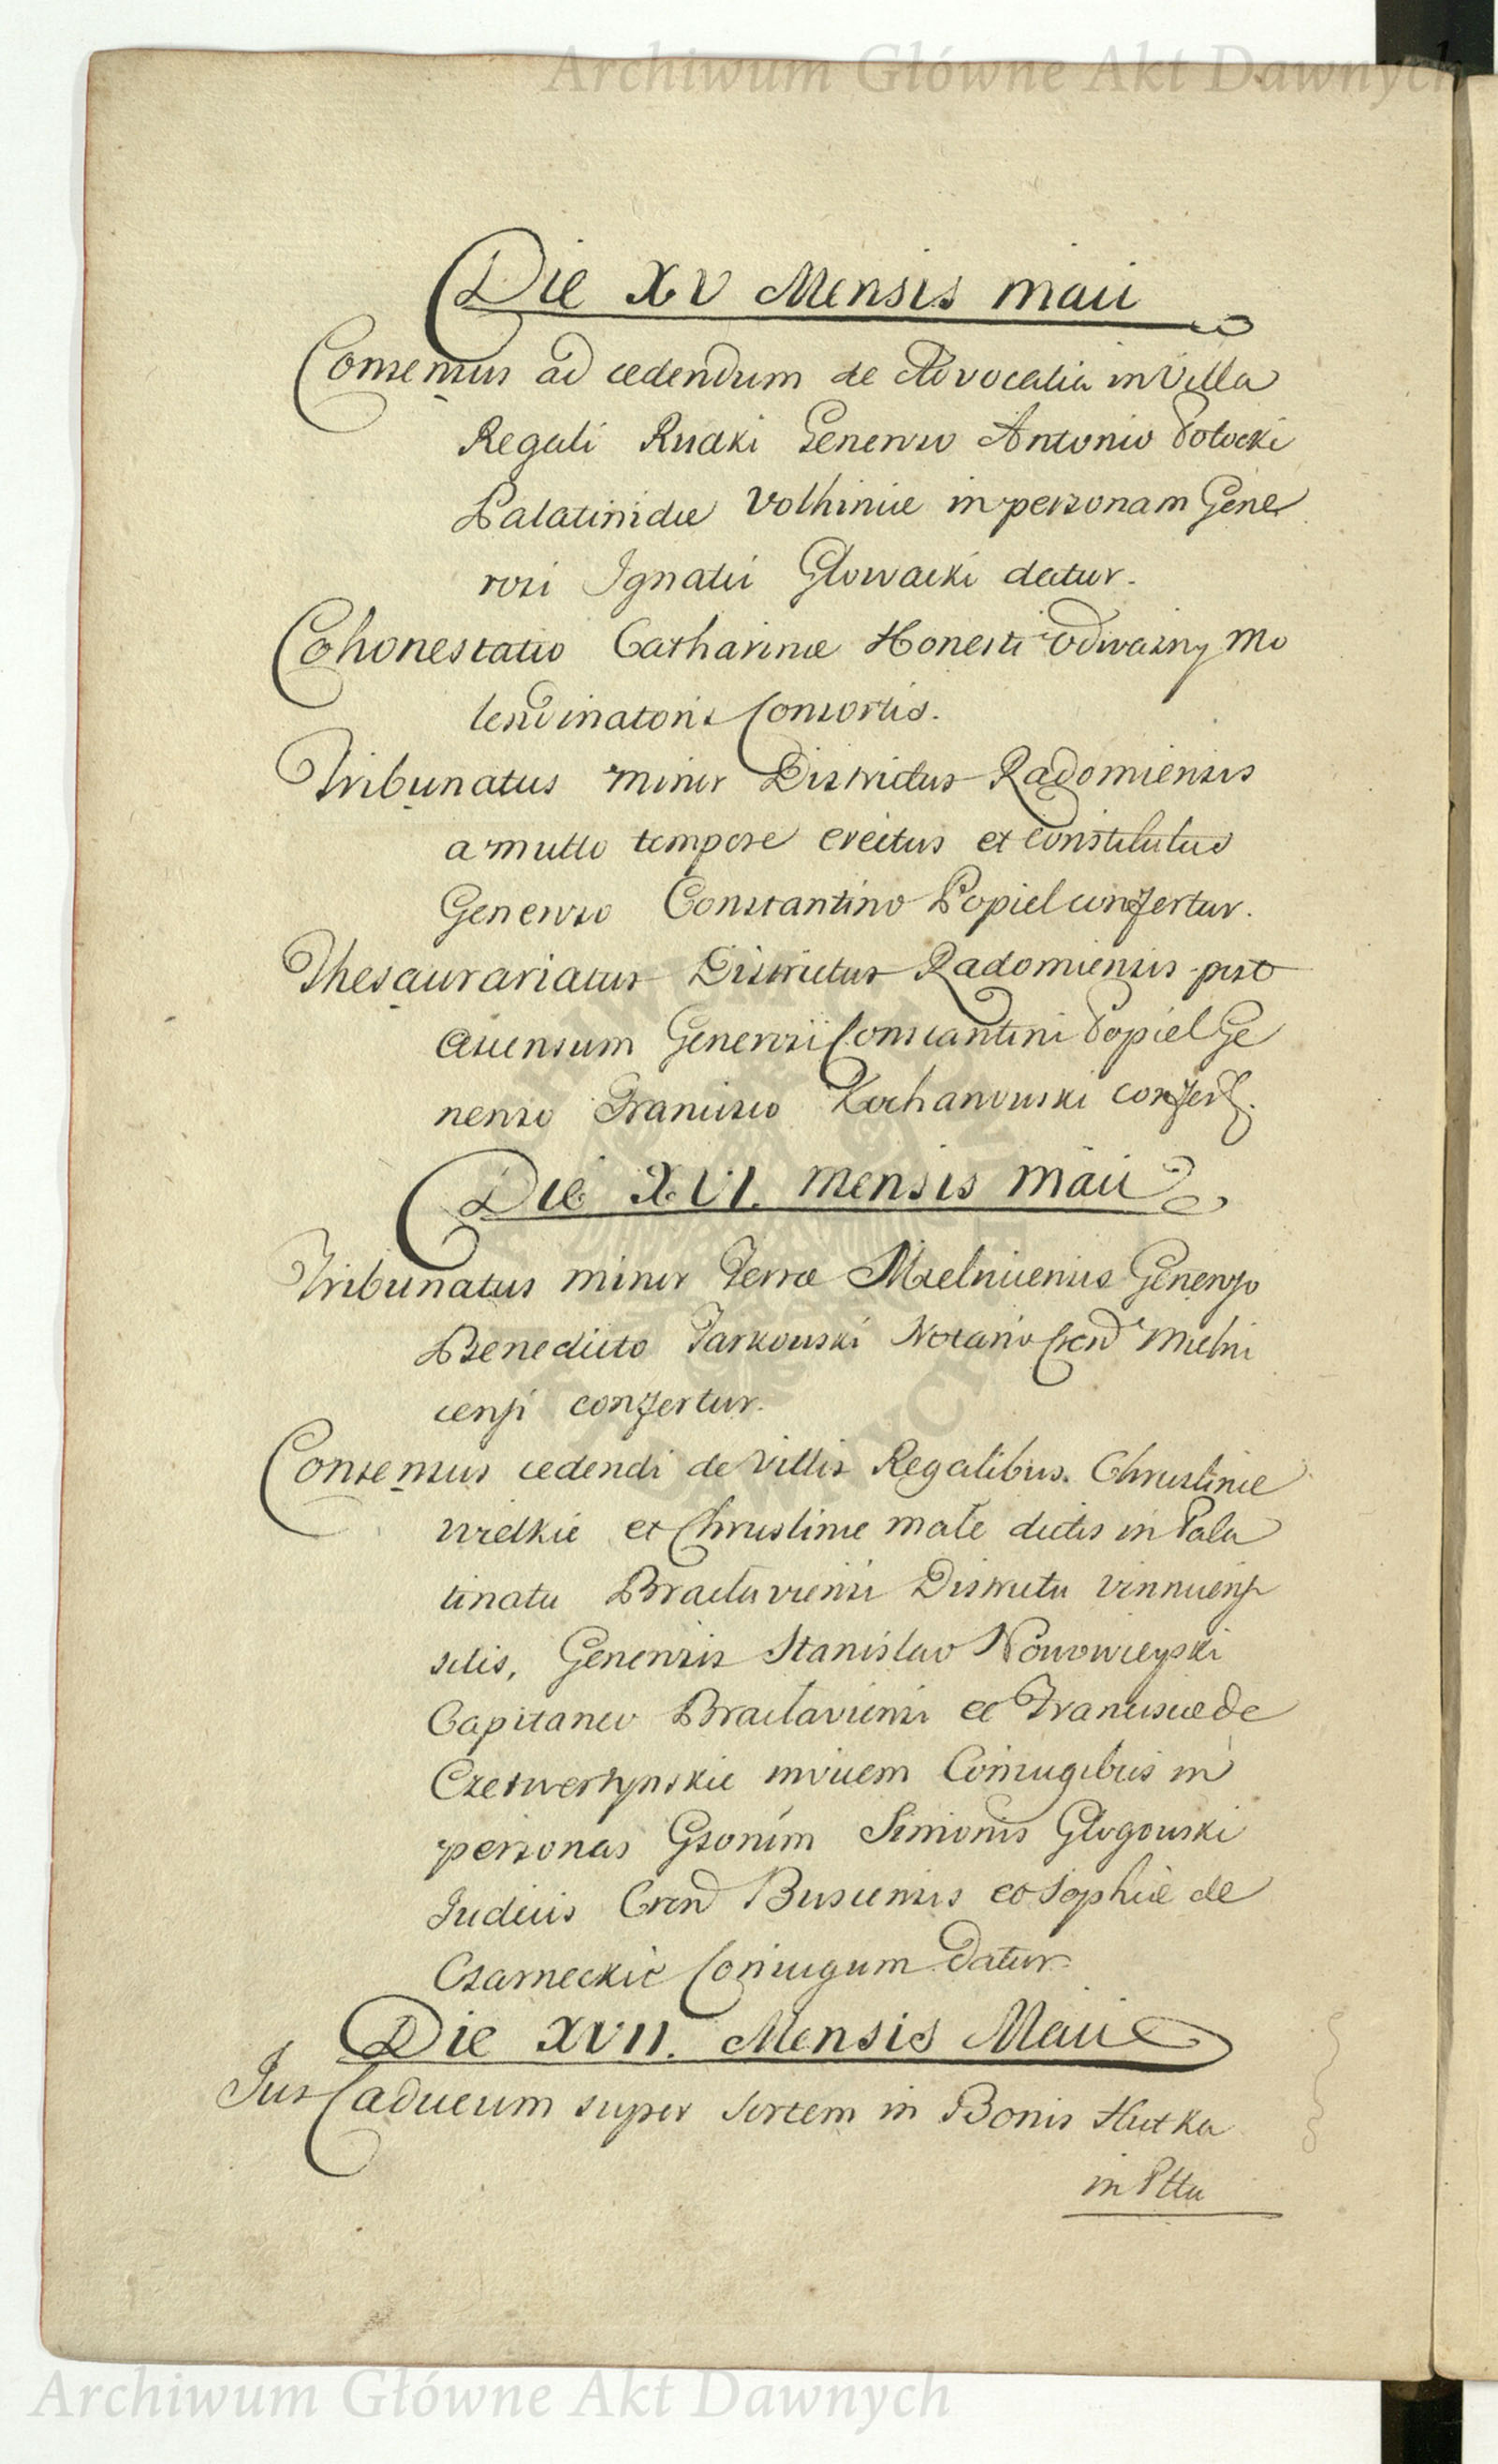 Archiwum Główne Akt Dawnych
Die XV Mensis maii
Consensus ad cedendum de Advocatia in Villa
Regali Rudki Generoso Antonio Potocki
Palatinidæ Volhiniæ in personam Gene
rosi Ignatii Głowacki datur.
Cohonestatio Catharinæ Honesti Odwazny Mo
lendinatoris Consortis.
Tribunatus minor Districtus Radomiensis
a multo tempore erectus et constitutus
Generoso Constantino Popiel confertur.
Thesaurariatus Districtus Radomiensis post
ascensum Generosi Constantini Popiel Ge
neroso Francisco Kochanowski confert.
Die XVI. mensis maii
Tribunatus minor Terræ Mielnicensis Generoso
Benedicto Tarkowski Notario Cren̄ Mielni
censi confertur.
Consensus cedendi de Villis Regalibus Chrustinie
wielkie et Chrustinie małe dictis in Pala
tinatu Bracłaviensi Districtu Vinnicensi
sitis, Generosis Stanislao Nowowieyski
Capitaneo Bracłaviensi et Franciscæ de
Czetwertynskie invicem Coniugibus in
personas Gsorūm Simonis Głogowski
Iudicis Cren̄ Buscensis et Sophiæ de
Czarneckie Coniugum datur.
Die XVII. Mensis Maii
Jus Caducum super Sortem in Bonis Hutka
in Pttu
Archiwum Główne Akt Dawnych